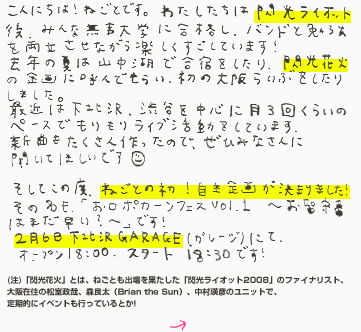 こんにちは！ねごとです。わたしたちは閃光ライオット
後、みんな無事大学に合格し、バンドと勉強
を両立させながら楽しくすごしています！
去年の夏は山中湖で合宿をしたり、閃光花火
の企画に呼んでもらい、初の大阪らいぶをしたり
しました。
最近は下北沢、渋谷を中心に月3回くらいの
ペースでもりもりライブ活動をしています。
新曲もたくさん作ったので、ぜひみなさんに
聞いてほしいです
そしてこの度、ねごとの初！自主企画が決まりました！
その名も、「お口ポカーンフェスvol.1 〜お留守番
はまだ早い？〜」です！
2月6日下北沢GARAGE(ガレージ)にて、
オープン18:00、スタート18:30です！
(注)「閃光花火」とは、ねごとも出場を果たした「閃光ライオット2008」のファイナリスト、
大阪在住の松室政哉、森良太（Brian the Sun）、中村瑛彦のユニットで、
定期的にイベントも行っているとか!